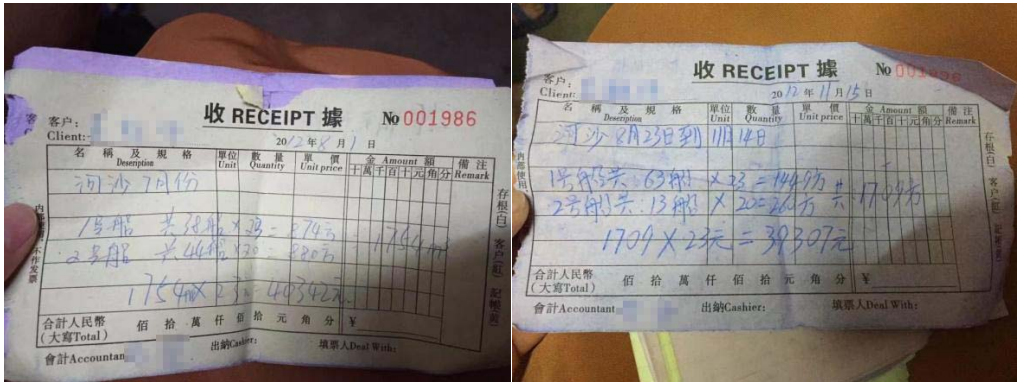 收 RECEIPT 據
No 001986
客户:
Client:
2012年8月1日
名稱及規格 Deseription
單位 Unit
數量 Quantity
單價 Unit price
金 Amount 額
十萬千百十元角分
備注 Remark
河沙7月份
1号船 共38船×23=874方
=1754方
2号船 共44船×20=880方
1754m×23=40342元
合計人民幣 佰拾萬仟佰拾元角分 ¥
(大寫Total)
會計Accountan
出納Cashier:
填票人Deal With:
存根(白) 客户(紅) 記帳(黄)
不作发票
收 RECEIPT 據
No
客户:
Client:
2012年11月15日
名稱及規格 Deseription
單位 Unit
數量 Quantity
單價 Unit price
金 Amount 額
十萬千百十元角分
備注 Remark
河沙8月23日到11月14日
1号船共63船×23=1449方
共1709方
2号船共13船×20=260方
1709×23元=39307元
合計人民幣 佰拾萬仟佰拾元角分 ¥
(大寫Total)
會計Accountant
出納Cashier:
填票人Deal With:
存根(白) 客户(紅)
内部使用